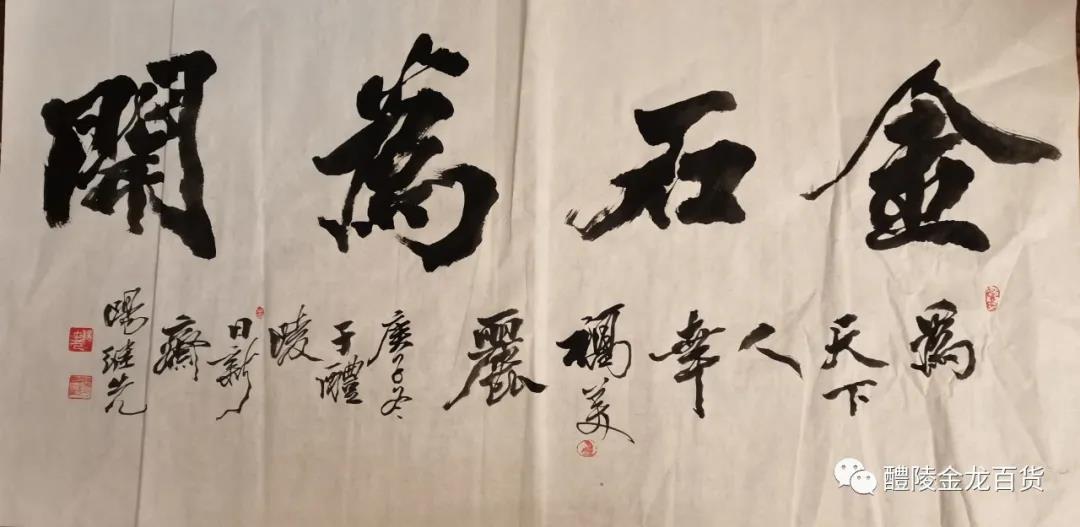 金石為開
為
天下
人
幸
福美
麗
庚子冬
于醴
陵
日新
齋
醴陵金龙百货